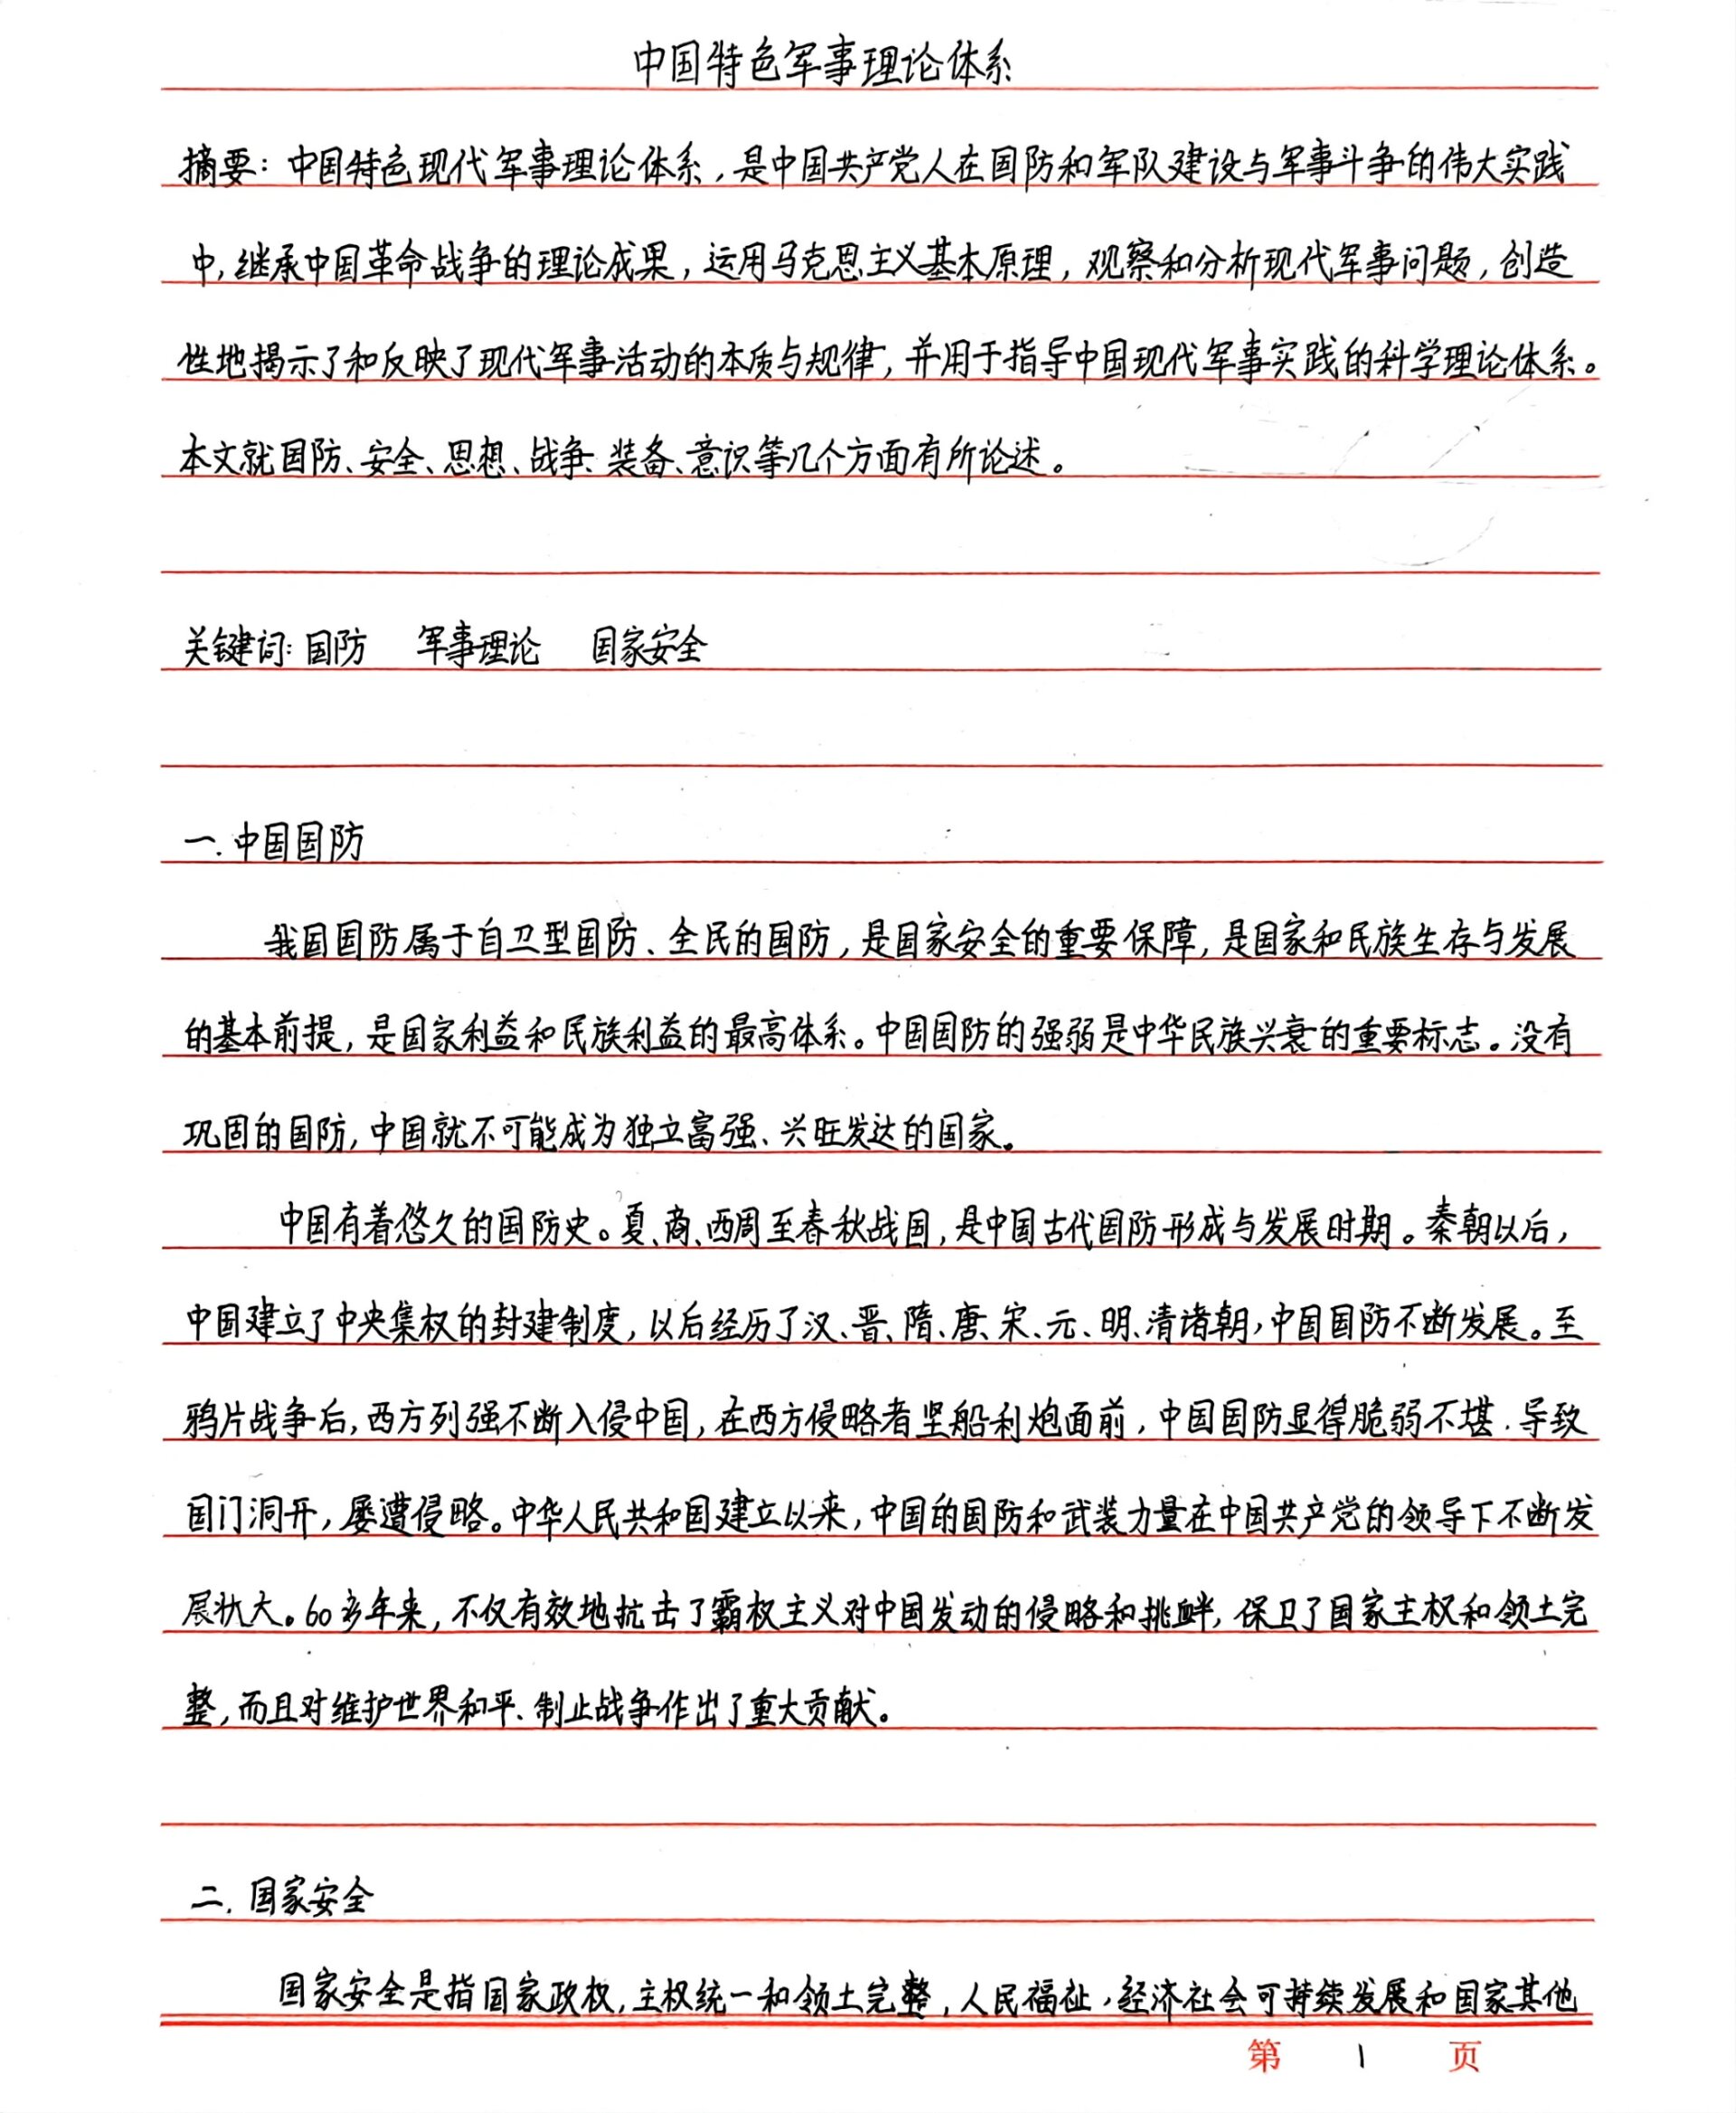 中国特色军事理论体系
摘要：中国特色现代军事理论体系，是中国共产党人在国防和军队建设与军事斗争的伟大实践
中，继承中国革命战争的理论成果，运用马克思主义基本原理，观察和分析现代军事问题，创造
性地揭示了和反映了现代军事活动的本质与规律，并用于指导中国现代军事实践的科学理论体系。
本文就国防、安全、思想、战争、装备、意识等几个方面有所论述。
关键词：国防 军事理论 国家安全
一.中国国防
我国国防属于自卫型国防、全民的国防，是国家安全的重要保障，是国家和民族生存与发展
的基本前提，是国家利益和民族利益的最高体系。中国国防的强弱是中华民族兴衰的重要标志。没有
巩固的国防，中国就不可能成为独立富强、兴旺发达的国家。
中国有着悠久的国防史。夏、商、西周至春秋战国，是中国古代国防形成与发展时期。秦朝以后，
中国建立了中央集权的封建制度，以后经历了汉、晋、隋、唐、宋、元、明、清诸朝，中国国防不断发展。至
鸦片战争后，西方列强不断入侵中国，在西方侵略者坚船利炮面前，中国国防显得脆弱不堪.导致
国门洞开，屡遭侵略。中华人民共和国建立以来，中国的国防和武装力量在中国共产党的领导下不断发
展状大。60多年来，不仅有效地抗击了霸权主义对中国发动的侵略和挑衅，保卫了国家主权和领土完
整，而且对维护世界和平、制止战争作出了重大贡献。
二.国家安全
国家安全是指国家政权，主权统一和领土完整，人民福祉，经济社会可持续发展和国家其他
第 1 页